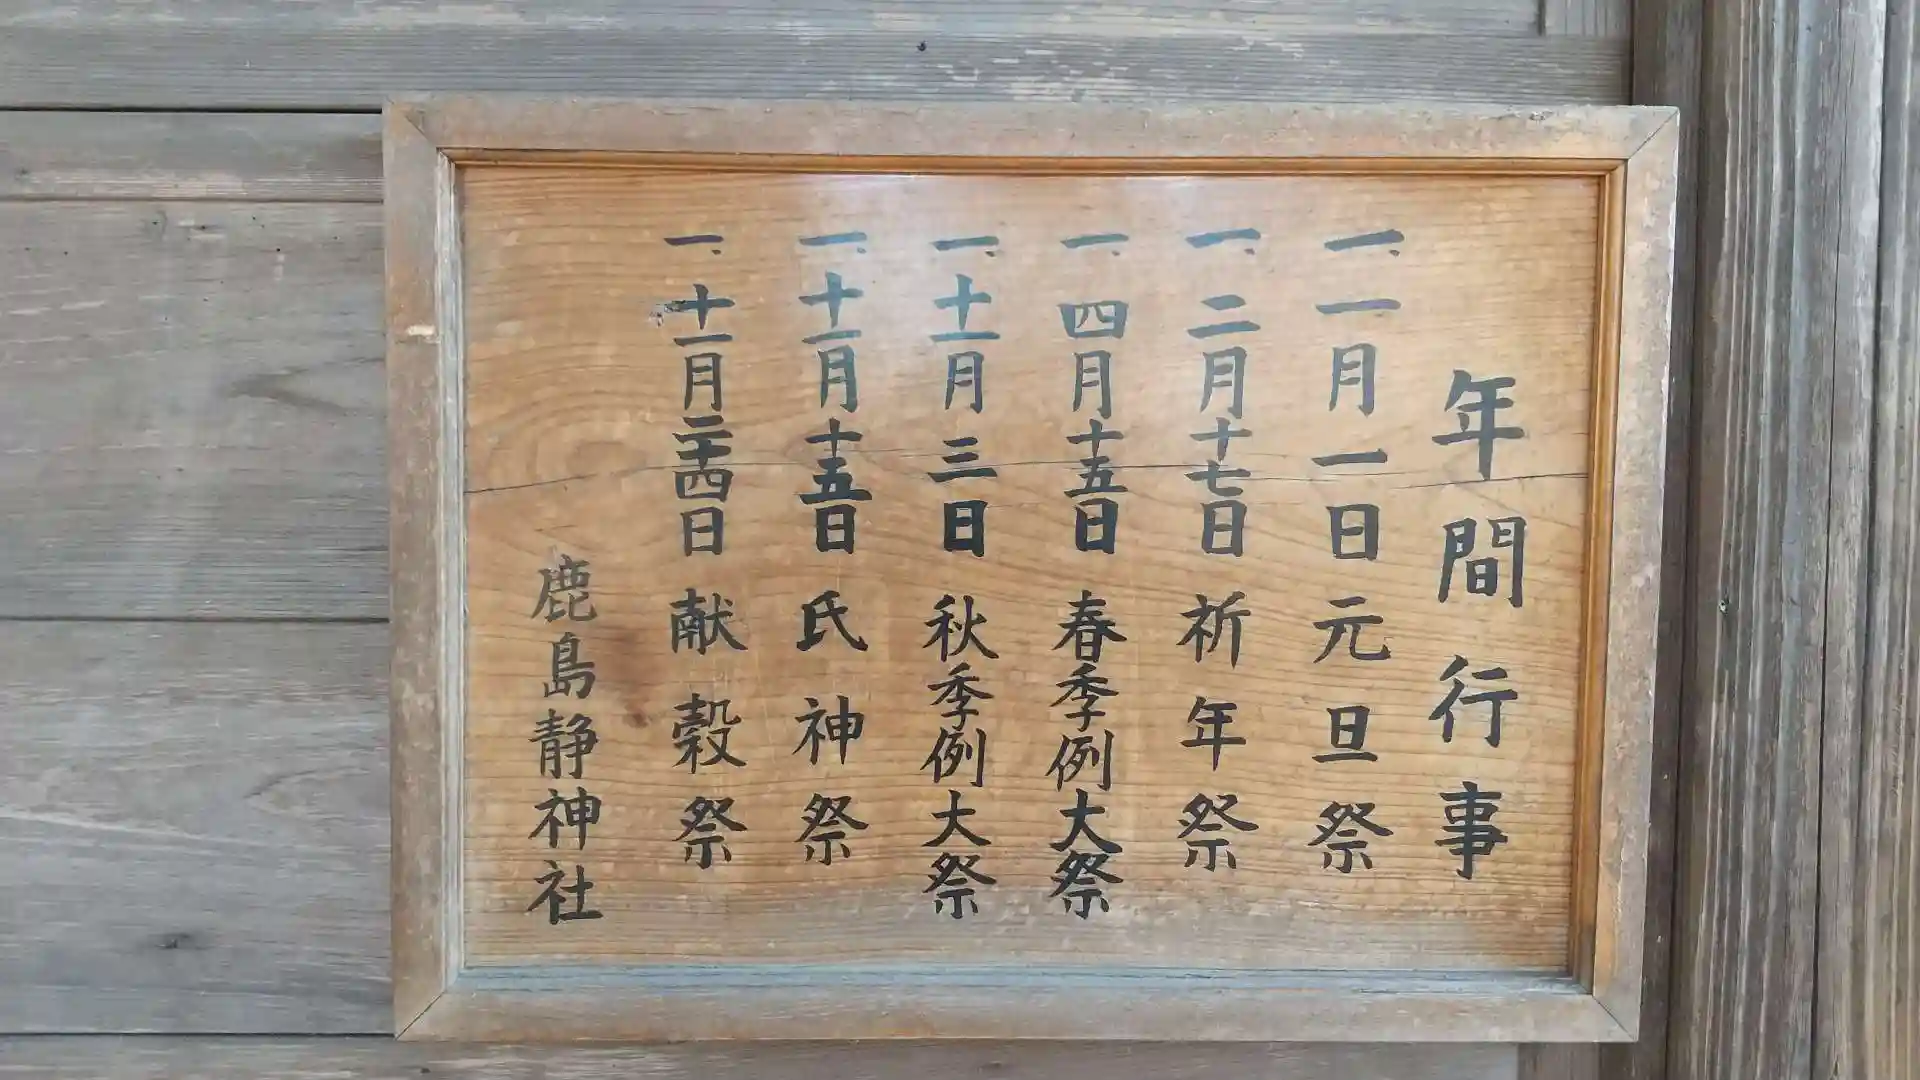 年間行事
一、一月一日元旦祭
一、二月十七日祈年祭
一、四月十五日春季例大祭
一、十一月三日秋季例大祭
一、十一月十五日氏神祭
一、十一月二十四日献穀祭
鹿島静神社